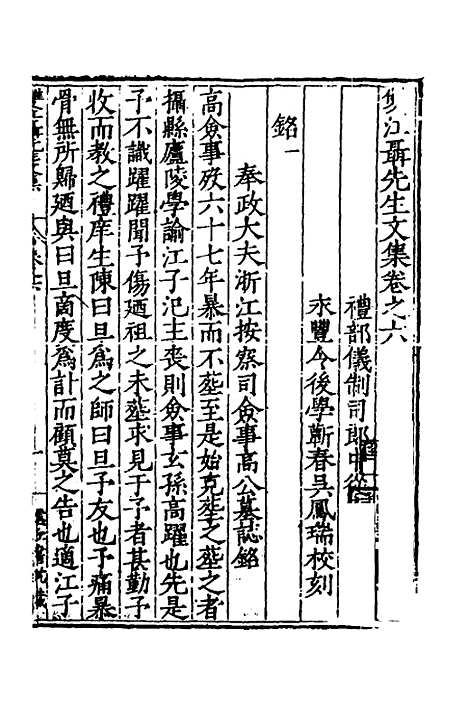 江聶先生文集卷之六
禮部儀制司郎中
永豐令後學蘄春吳鳳瑞校刻
銘一
奉政大夫浙江按察司僉事高公墓誌銘
高僉事歿六十七年暴而不塟至是始克塟之塟之者
攝縣廬陵學諭江子汜主丧則僉事玄孫高躍也先是
予不識躍躍聞予傷廼祖之未塟求見于予者甚勤予
收而教之禮庠生陳曰旦爲之師曰旦予友也予痛暴
骨無所歸廼與曰旦啇度爲計而顧莫之告也適江子